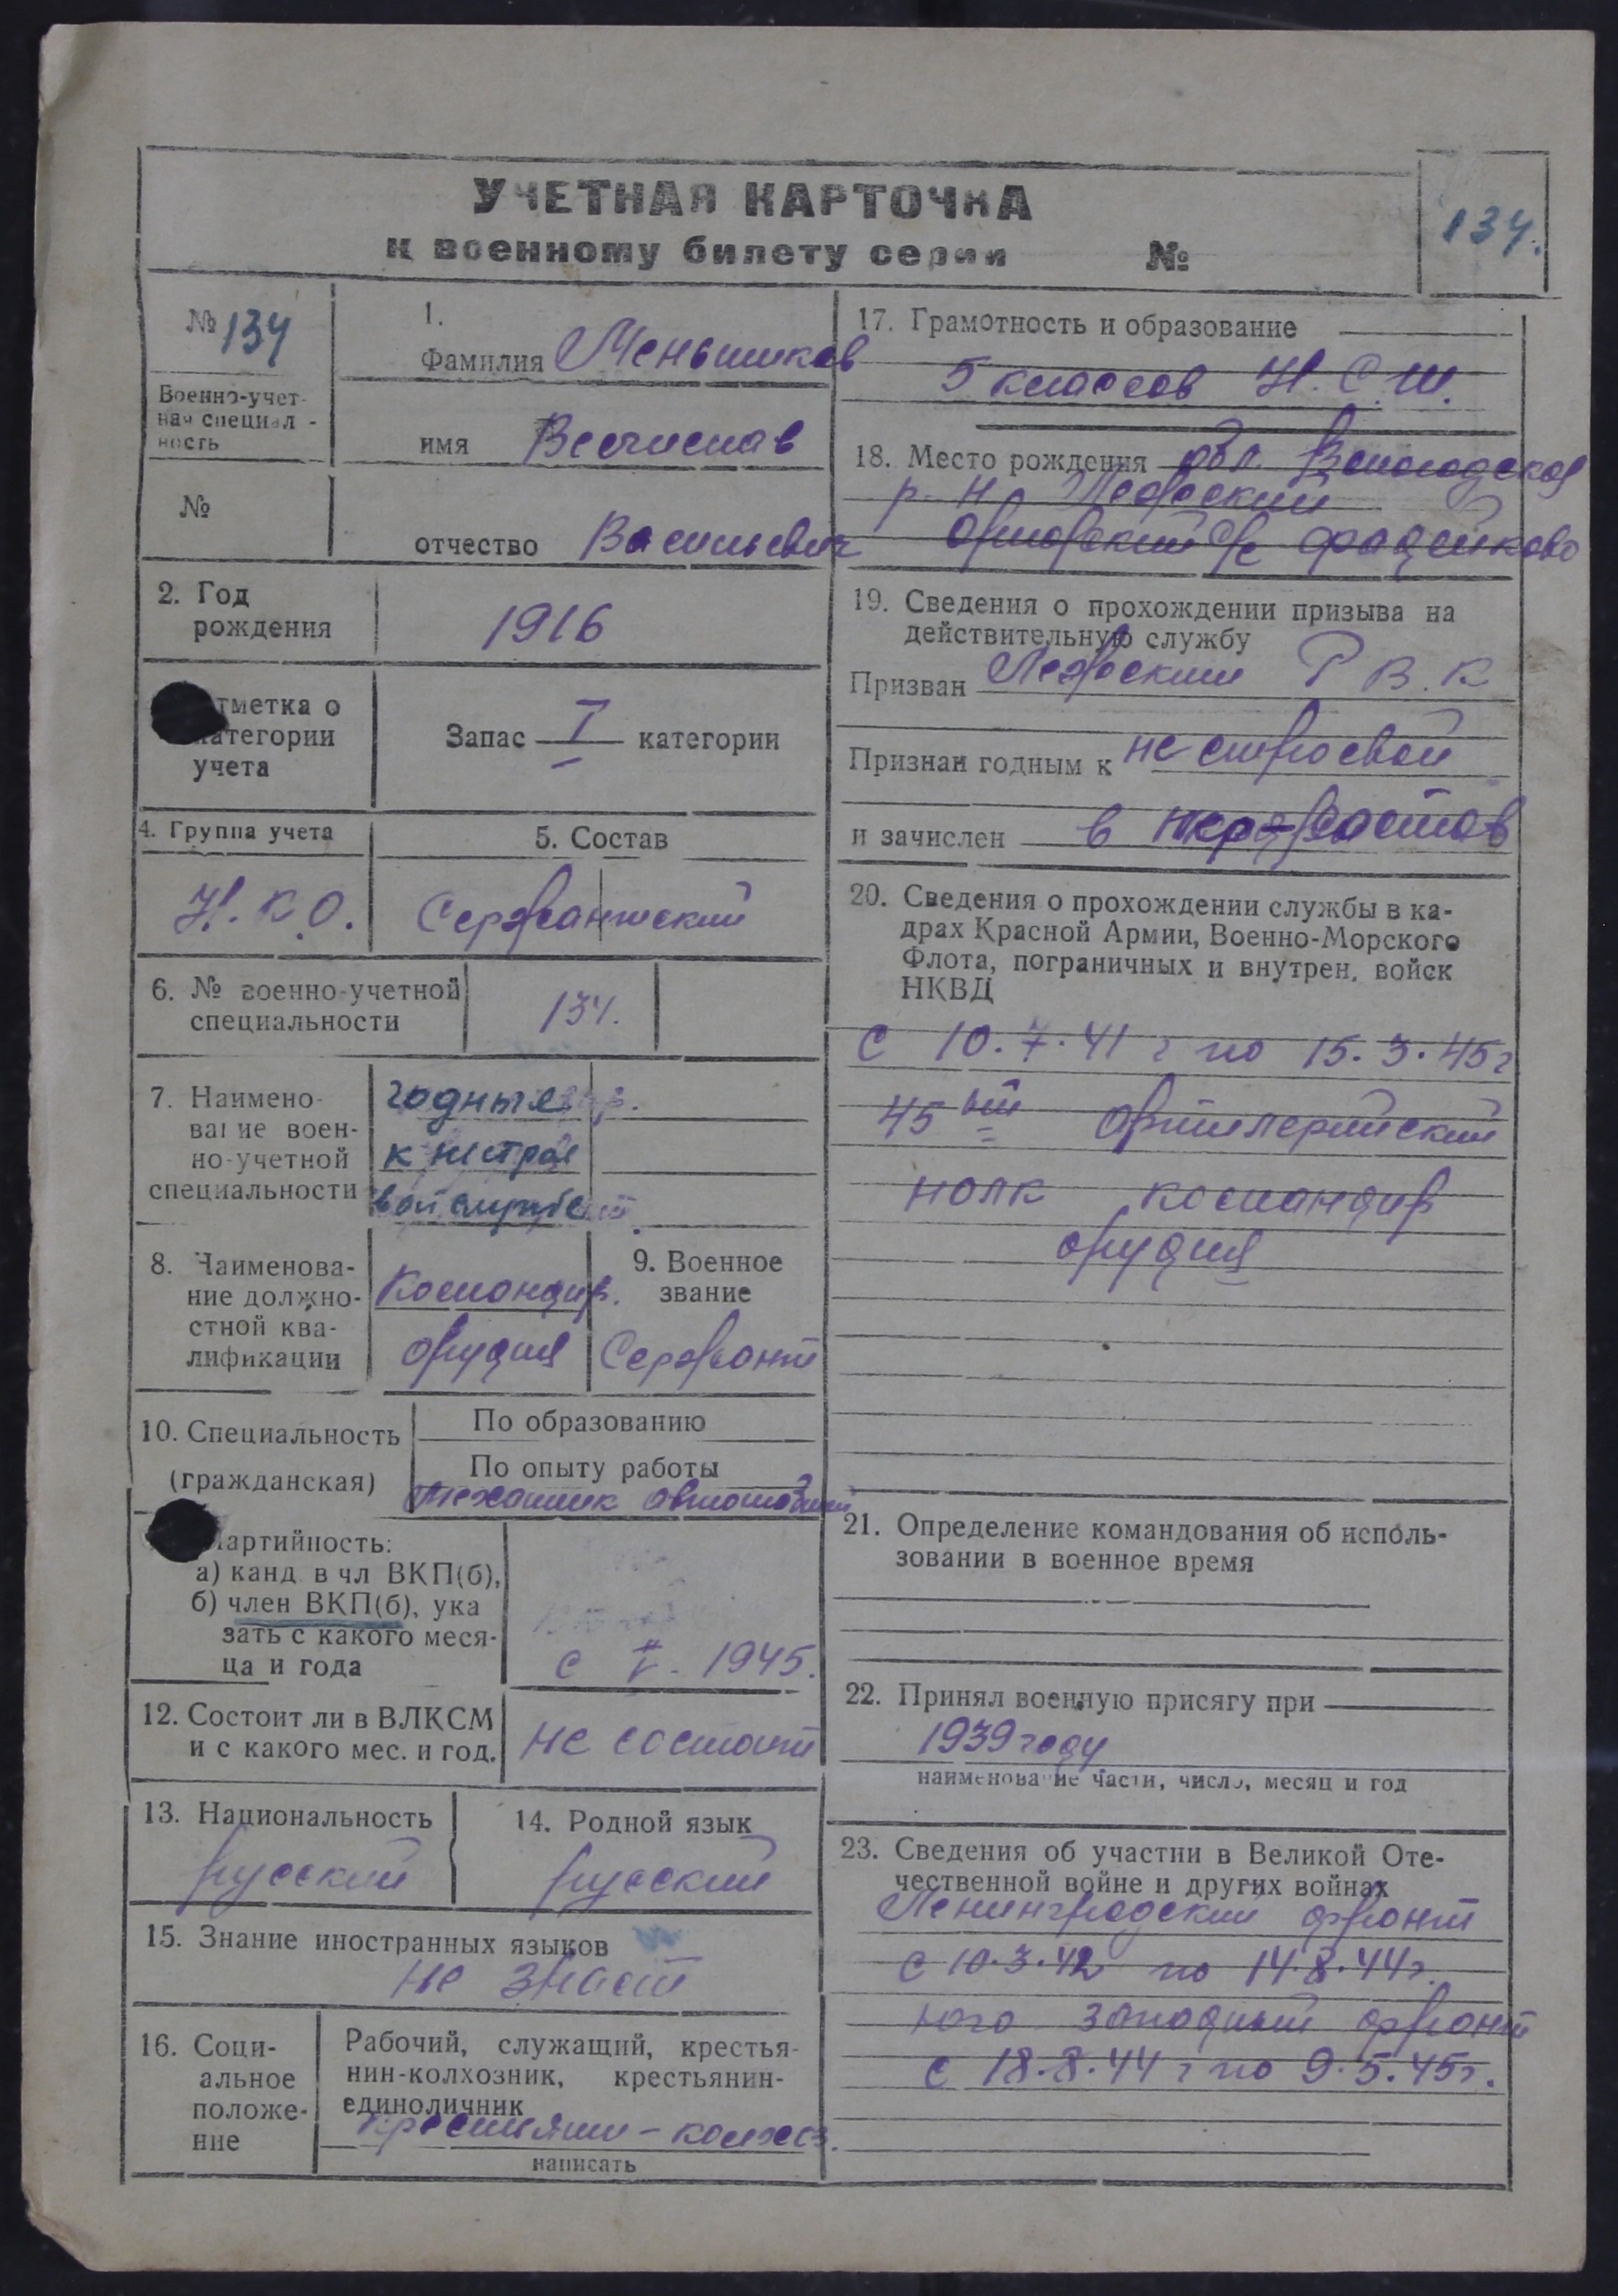 УЧЕТНАЯ КАРТОЧКА
к военному билету серии №
134.
№ 134
Военно-учет-
ная специал-
ность
№
1.
Фамилия Меньшиков
имя Весчислав
отчество Васильевич
2. Год
рождения
1916
тметка о
категории
учета
Запас I категории
4. Группа учета
Н.К.О.
5. Состав
Сержантский
6. № военно-учетной
специальности
134.
7. Наимено-
вание воен-
но-учетной
специальности
годные
к нестрое
вой службе
8. Наименова-
ние должно-
стной ква-
лификации
Командир.
орудия
9. Военное
звание
Сержант
10. Специальность
(гражданская)
По образованию
По опыту работы
механик
артийность:
а) канд в чл ВКП(б),
б) член ВКП(б), ука
зать с какого меся-
ца и года
с V - 1945.
12. Состоит ли в ВЛКСМ
и с какого мес. и год.
не состоит
13. Национальность
русский
14. Родной язык
русский
15. Знание иностранных языков
не знает
16. Соци-
альное
положе-
ние
Рабочий, служащий, крестья-
нин-колхозник, крестьянин-
единоличник
крестьянин-колхоз.
написать
17. Грамотность и образование
5 классов Н.С.Ш.
18. Место рождения обл. Вологодская
р-н Лежский
с/с Фрадейково
19. Сведения о прохождении призыва на
действительную службу
Призван Лежским Р В. К
Признан годным к не строевой
и зачислен в
20. Сведения о прохождении службы в ка-
драх Красной Армии, Военно-Морского
Флота, пограничных и внутрен. войск
НКВД
с 10.7.41 г по 15.3.45г
45 ый Артилерийский
полк командир
орудия
21. Определение командования об исполь-
зовании в военное время
22. Принял военную присягу при
1939 году
наименование части, число, месяц и год
23. Сведения об участии в Великой Оте-
чественной войне и других войнах
Ленинградский фронт
с 10.3.42 по 14.8.44г.
юго западный фронт
с 18.8.44 г по 9.5.45г.